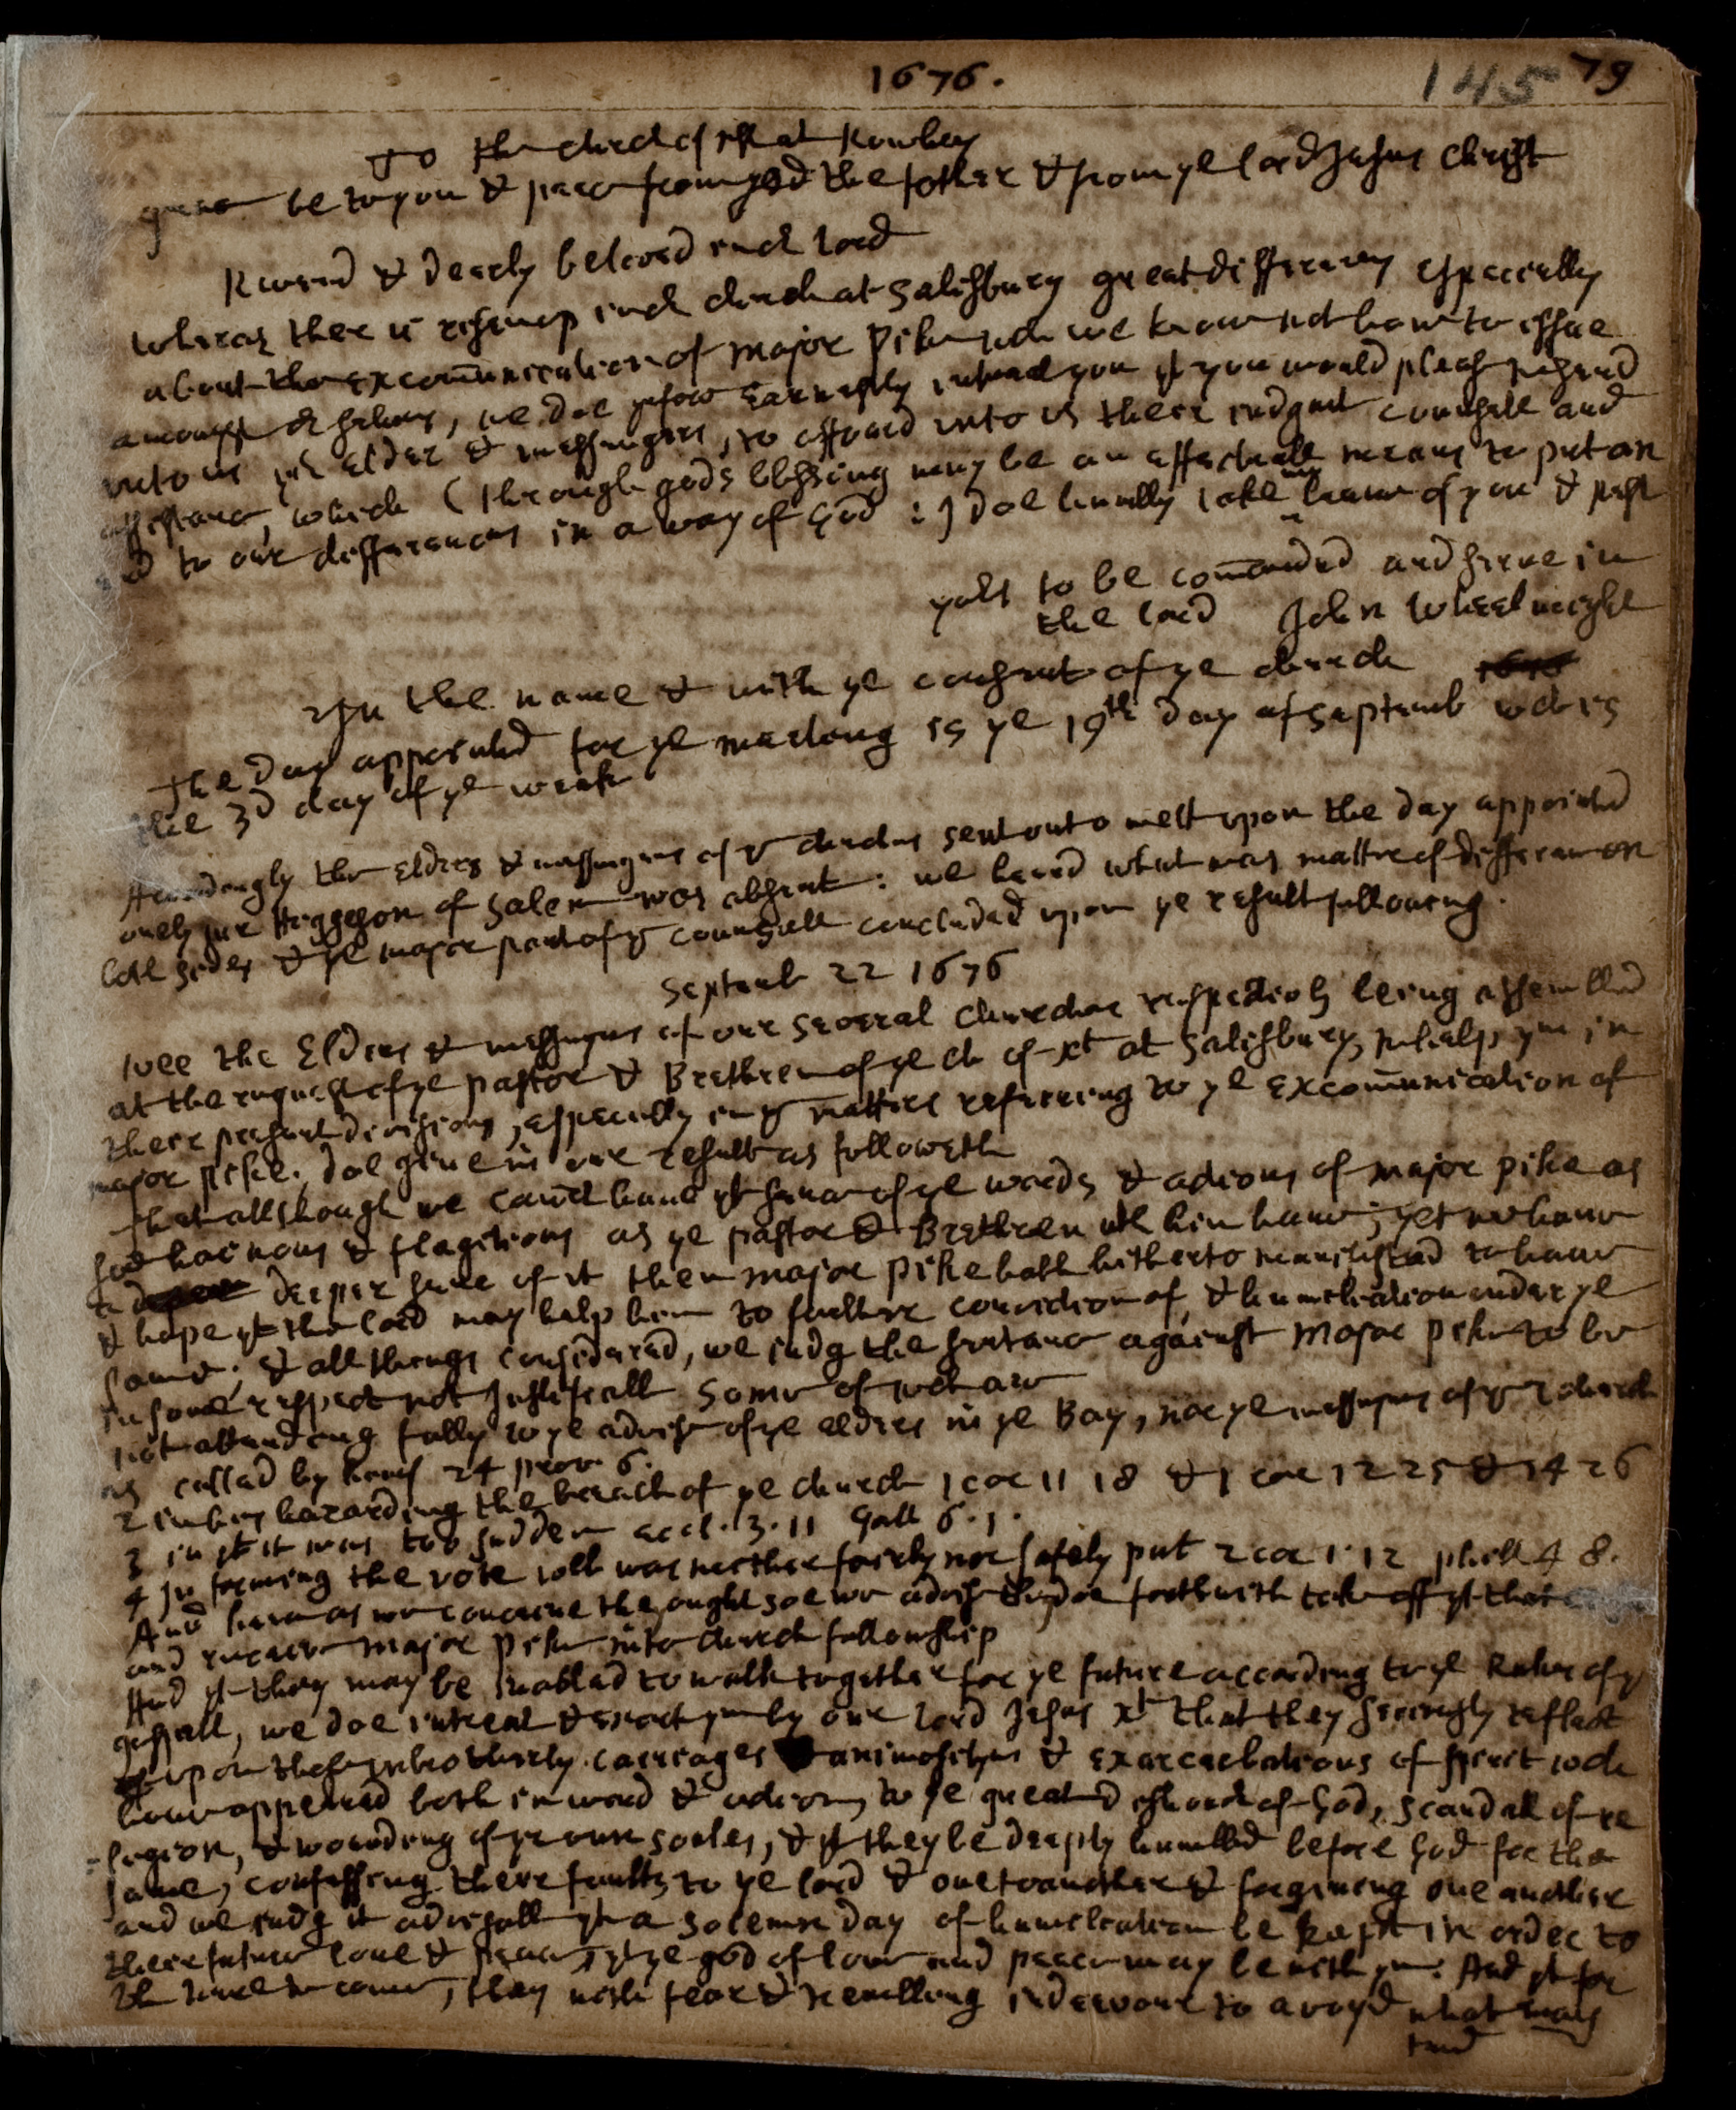 1676.
145 79
To the church of xst at Rowley
grace be to you & peace from god the father & from ye lord Jesus Christ
Reverend & dearly beloved in the lord
Whereas there is risen up in the church at Salisbury great differences especially
about the excomunication of Major Pike wch we know not how to issue
amongst our selves, we doe yrfore earnestly intreat you yt you would please to send
unto us yor Elder & messengers, to afford unto us there judgmt counsell and
assistance, which (through gods blessing may be an effectuall means to put an
end to our differences in a way of God :) I doe humbly take my leave of you & rest
yours to be comanded and serve in
the lord John Wheelwright
In the name & with ye consent of ye church
The day appointed for ye meeting is ye 19th day of Septemb wch is
the 3d day of ye week
Accordingly the Elders & messengers of ye churches sent unto mett upon the day appointed
onely mr Higgeson of Salem was absent: we heard what was matter of difference on
both sides & ye major part of ye counsell concluded upon ye result following.
Septemb 22 1676
Wee the Elders & messengers of our several churches respectively being assembled
at the request of ye pastor & Brethren of ye ch of xt at Salisbury, to help ym in
there present divisions, especially in ye matters referring to ye excomunication of
major pike. doe give in our result as followeth
That allthough we canot have yt sense of ye words & actions of major pike as
soe hainous & flagitious as ye pastor & Brethren wth him have; yet we have
a deeper sence of it then major pike hath hitherto manifested to have
& hope yt the lord may help him to further conviction of, & humeliation under ye
same; & all things considered, we judg the sentance against Major pike to be
in some respect not Justifiall some of wch are
not attending fully to ye advise of ye elders in ye Bay, nor ye messengers of ye 2 church
as called by 24 prov 6.
2 in hazarding the breach of ye church 1 cor 11 18 & 1 cor 12 25 & 14 26
3 in yt it was too sudden eccl. 3. 11 Gall 6. 1.
4 In forming the vote wch was neither fairly nor safely put 2 cor 1. 12 phill 4 8.
And herein as we conceive they ought soe we advise they doe forthwith take off yt that
and receive major pike into church fellowship
And yt they may be inabled to walk together for ye future according to ye Rules of ye
gospall, we doe intreat & exort ym by our lord Jesus xt that they seriously reflect
upon these unbrotherly carriages animosityes & exarcerbations of spirit wch
have appeared both in word & action, to ye great dishonor of God, scandall of re
-ligion, & wounding of yr own soules, & yt they be deeply humbled before God for the
same, confessing there faults to ye lord & one to another & forgiving one another
and we judg it advisall yt a solemn day of humeliation be kept in order to
there future love & peace, yt ye god of love and peace may be with ym: And yt for
the time to come, they with fear & trembling indevour to avoyd what may
tend